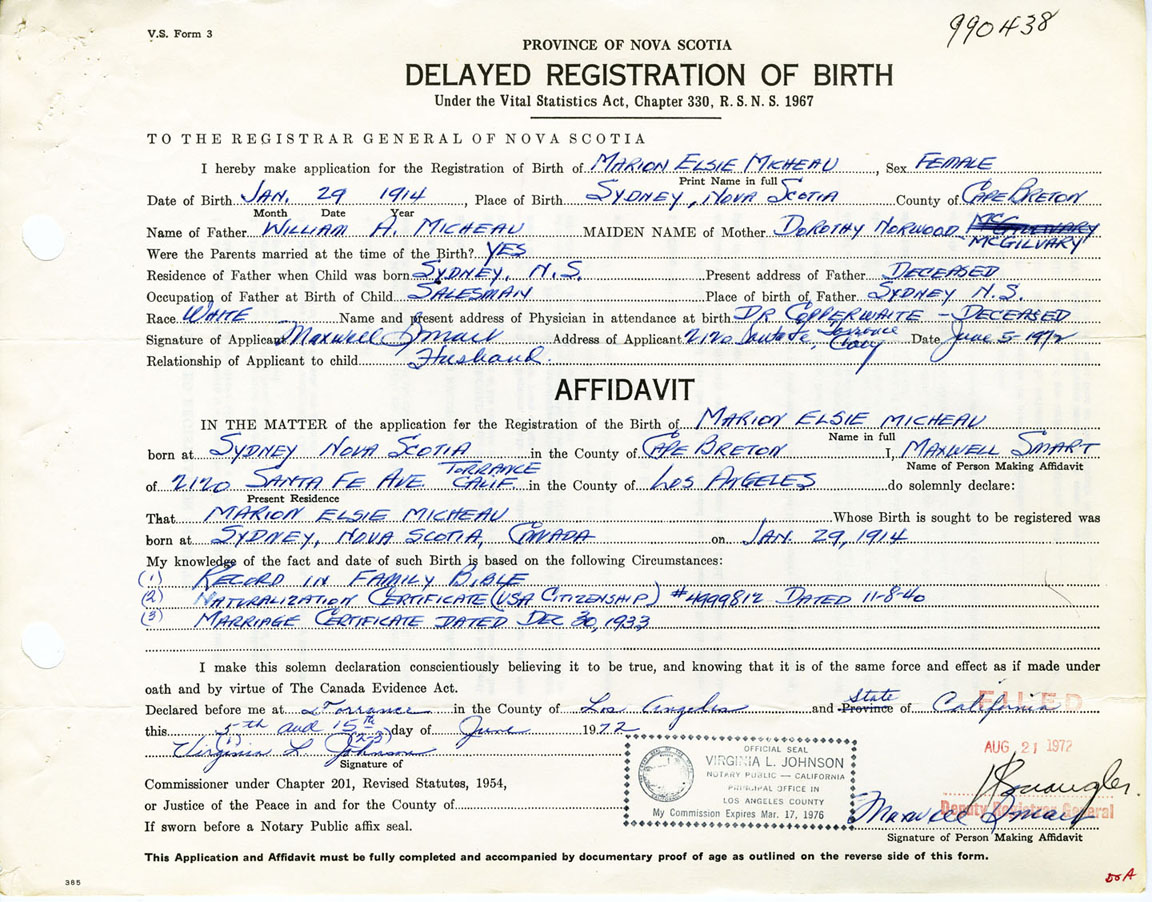 V.S. Form 3
990438
PROVINCE OF NOVA SCOTIA
DELAYED REGISTRATION OF BIRTH
Under the Vital Statistics Act, Chapter 330, R. S. N. S. 1967
TO THE REGISTRAR GENERAL OF NOVA SCOTIA
I hereby make application for the Registration of Birth of MARION ELSIE MICHEAU, Sex FEMALE
Print Name in full
Date of Birth JAN. 29 1914, Place of Birth SYDNEY, NOVA SCOTIA County of CAPE BRETON
Month Date Year
Name of Father WILLIAM A. MICHEAU MAIDEN NAME of Mother DOROTHY NORWOOD
MCGILVARY
Were the Parents married at the time of the Birth? YES
Residence of Father when Child was born SYDNEY, N.S. Present address of Father DECEASED
Occupation of Father at Birth of Child SALESMAN Place of birth of Father SYDNEY N.S.
Race WHITE Name and present address of Physician in attendance at birth DR COPPERWAITE - DECEASED
Signature of Applicant Maxwell Smart Address of Applicant 2120 Santa Fe, Torrance Date June 5 1972
Relationship of Applicant to child Husband.
AFFIDAVIT
IN THE MATTER of the application for the Registration of the Birth of MARION ELSIE MICHEAU
Name in full
born at SYDNEY NOVA SCOTIA in the County of CAPE BRETON I, MAXWELL SMART
Name of Person Making Affidavit
of 2120 SANTA FE AVE TORRANCE CALIF. in the County of LOS ANGELES do solemnly declare:
Present Residence
That MARION ELSIE MICHEAU Whose Birth is sought to be registered was
born at SYDNEY, NOVA SCOTIA, CANADA on JAN. 29, 1914
My knowledge of the fact and date of such Birth is based on the following Circumstances:
(1) RECORD IN FAMILY BIBLE
(2) NATURALIZATION CERTIFICATE (USA CITIZENSHIP) #4999812 DATED 11-8-40
(3) MARRIAGE CERTIFICATE DATED DEC 30, 1933
I make this solemn declaration conscientiously believing it to be true, and knowing that it is of the same force and effect as if made under
oath and by virtue of The Canada Evidence Act.
Declared before me at Torrance in the County of Los Angeles and Province State of California
FILED
this 5th and 15th day of June 1972
(1) (2-3)
AUG 21 1972
Virginia L. Johnson
Signature of
Commissioner under Chapter 201, Revised Statutes, 1954,
or Justice of the Peace in and for the County of
If sworn before a Notary Public affix seal.
OFFICIAL SEAL
VIRGINIA L. JOHNSON
NOTARY PUBLIC — CALIFORNIA
PRINCIPAL OFFICE IN
LOS ANGELES COUNTY
My Commission Expires Mar. 17, 1976
Deputy Registrar General
Maxwell Smart
Signature of Person Making Affidavit
This Application and Affidavit must be fully completed and accompanied by documentary proof of age as outlined on the reverse side of this form.
385